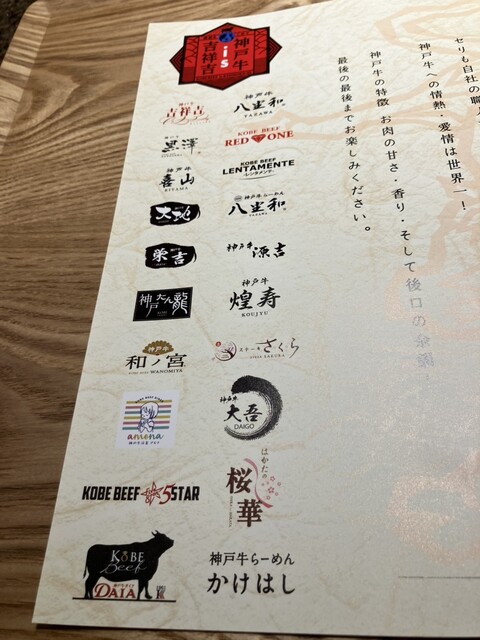 セリも自社の職人
神戸牛への情熱・愛情は世界一!
神戸牛の特徴、お肉の甘さ・香り・そして後口の余韻。
最後の最後までお楽しみください。
神戸牛 is 吉祥吉
吉祥吉
神戸牛
八坐和
YAZAWA
黒澤
KOBE BEEF
RED ONE
神戸牛
喜山
KIYAMA
KOBE BEEF
LENTAMENTE
レンタメンテ
大地
神戸牛らーめん
八坐和
栄吉
神戸牛 源吉
神戸 だん 龍
神戸牛
煌寿
KOUJYU
神戸牛
和ノ宮
WANOMIYA
ステーキ さくら
STEAK SAKURA
amona
神戸牛
大吾
DAIGO
KOBE BEEF 5STAR
はかたの
桜華
KOBE
Beef
DAIA
神戸牛らーめん
かけはし